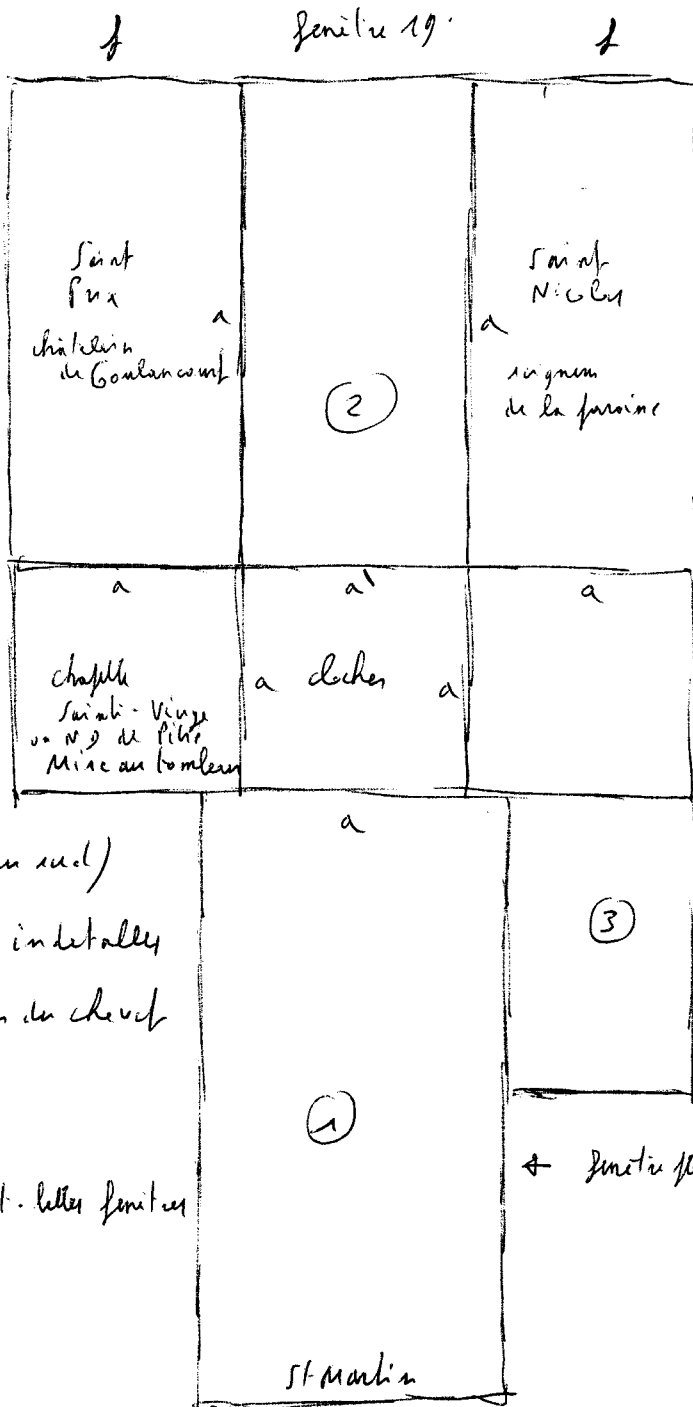 f fenêtre 19. f
Saint
Prix
châtelain
de Goulancourt
a
2
a
Saint
Nicolas
seigneur
de la paroisse
a a' a
chapelle
Sainte-Vierge
ou N D de Pitié
Mise au tombeau
a clocher a
a
sud)
du chevet
3
1
belles fenêtres
fenêtre
St-Martin